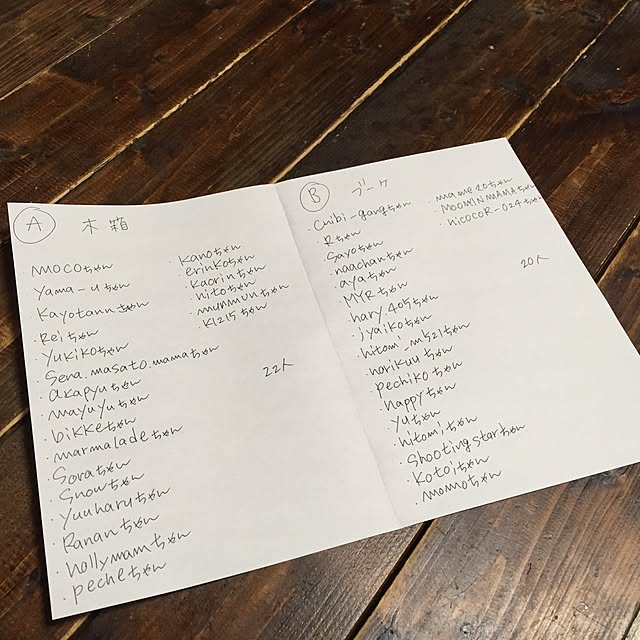 A 木箱
mocoちゃん
yama-uちゃん
Kayotannさん
・Reiちゃん
・yukikoちゃん
・Sena.masato.mamaちゃん
・akapyuちゃん
・mayuyuちゃん
・bikkeちゃん
・marmaladeちゃん
・Soraちゃん
・Snowちゃん
・yuuharuちゃん
・Rananちゃん
・hollymamちゃん
・pecheちゃん
・Kanoちゃん
・erinkoちゃん
・Kaorinちゃん
・hitoちゃん
・munmunちゃん
・K1215ちゃん
22人
B ブーケ
・Chibi-gangちゃん
・Rちゃん
・Sayoちゃん
・naachanちゃん
・ayaちゃん
・MYRちゃん
・hary405ちゃん
・jyaikoちゃん
・hitomi_m521ちゃん
・norikuuちゃん
・pechikoちゃん
・happyちゃん
・yuちゃん
・hitomiちゃん
・Shootingstarちゃん
・Kotoiちゃん
・momoちゃん
・mame20ちゃん
・MOOMINMAMAちゃん
・nicocoR-024ちゃん
20人